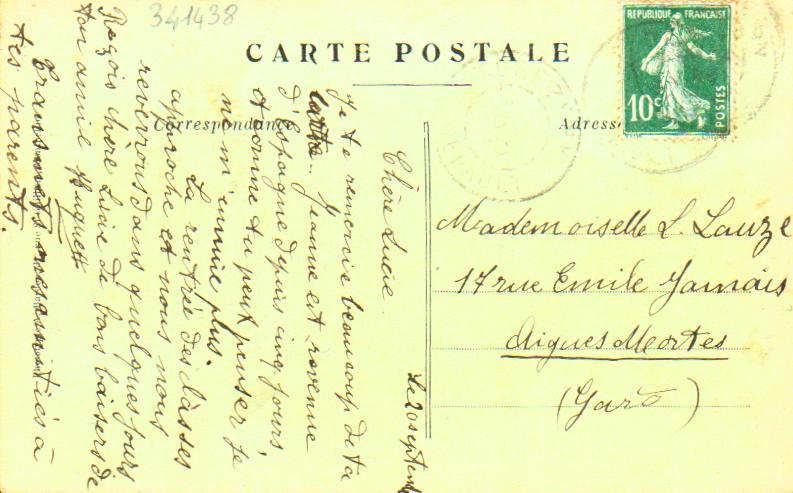 341438
CARTE POSTALE
REPUBLIQUE FRANÇAISE
10c
POSTES
Correspondance
Adresse
Le 20 septem
Chère Lucie.
Je te remercie beaucoup de ta
lettre. Jeanne est revenue
d'Espagne depuis cinq jours
et comme tu peux penser je
ne m'ennuie plus.
La rentrée des classes
approche et nous nous
reverrons dans quelques jours
Reçois chère Lucie de bons baisers de
ton amie Huguette
Transmet nos amitiés à
tes parents.
Mademoiselle L. Lauze
17 rue Emile Jamais
Aigues Mortes
(Gard)